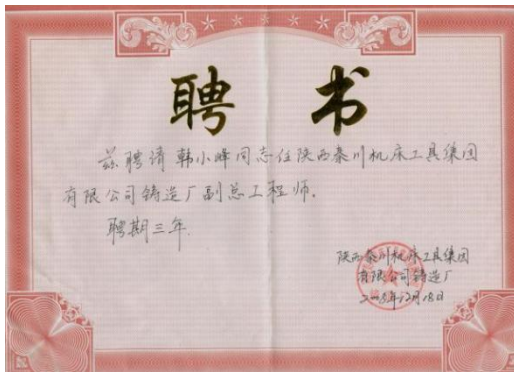 聘书
兹聘请韩小峰同志任陕西秦川机床工具集团
有限公司铸造厂副总工程师。
聘期三年.
陕西秦川机床工具集团
有限公司铸造厂